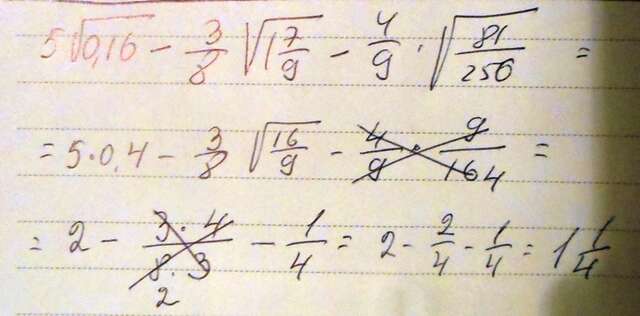 5√0,16 − 3/8 √1 7/9 − 4/9 · √81/256 =
= 5·0,4 − 3/8 √16/9 − 4/9 · 9/16 4 =
= 2 − 3·4/8·3 2 − 1/4 = 2 − 2/4 − 1/4 = 1 1/4